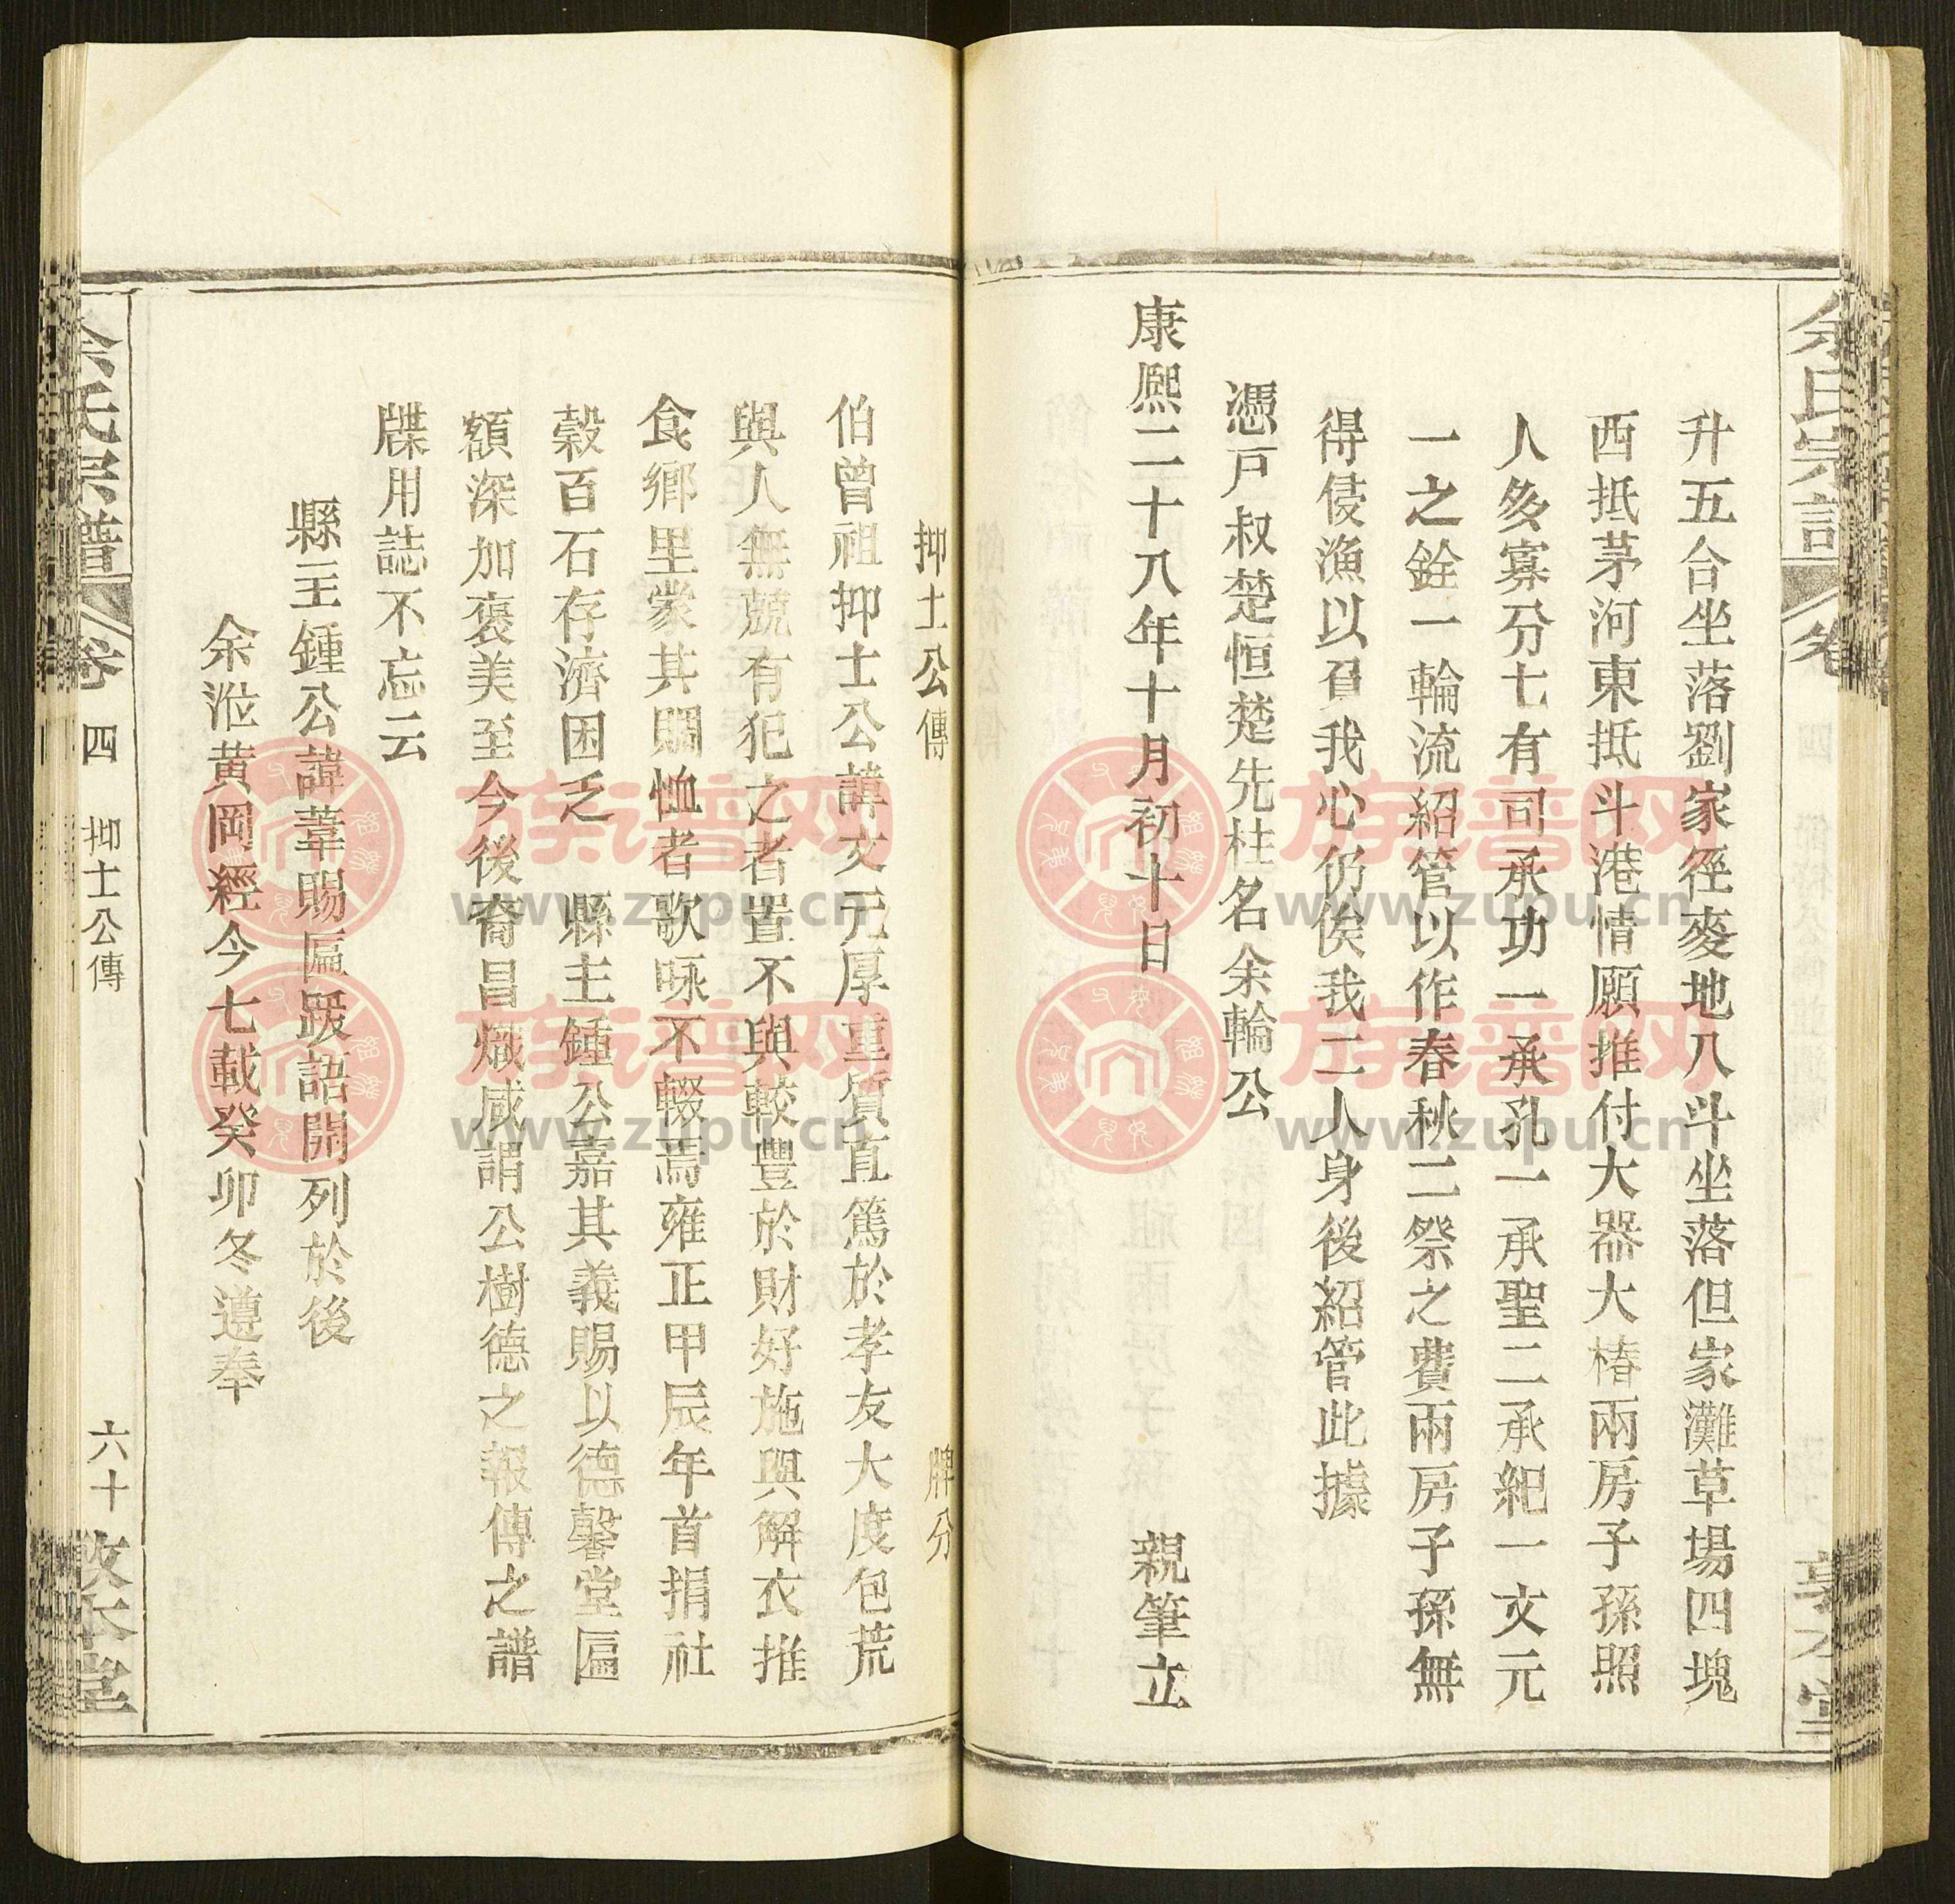 升五合坐落劉家徑麥地八斗坐落但家灘草場四塊
西抵茅河東抵斗港情願推付大器大椿兩房子孫照
人多寡分七有司承功一承孔一承聖二承紀一文元
一之銓一輪流紹管以作春秋二祭之費兩房子孫無
得侵漁以負我心仍俟我二人身後紹管此據
憑戶叔楚恒楚先柱名余輪公
康熙二十八年十月初十日 親筆立
抑士公傳 牌分
伯曾祖抑士公諱文元厚重質直篤於孝友大度包荒
與人無競有犯之者置不與較豐於財好施與解衣推
食鄉里蒙其賙恤者歌咏不輟焉雍正甲辰年首捐社
穀百石存濟困乏 縣主鍾公嘉其義賜以德馨堂匾
額深加褒美至今後裔昌熾咸謂公樹德之報傳之譜
牒用誌不忘云
縣主鍾公諱葦賜匾跋語開列於後
余涖黃岡經今七載癸卯冬遵奉
余氏宗譜 卷四 抑士公傳 六十 敦本堂
族谱网
www.zupu.cn
族谱网
www.zupu.cn
族谱网
www.zupu.cn
族谱网
www.zupu.cn